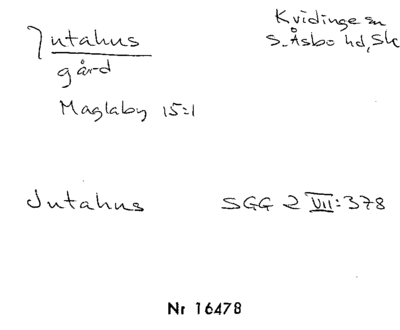 Jutahus
gård
Maglaby 15:1
Kvidinge sn
S. Åsbo hd, Sk
Jutahus SGG 2 VII:378
Nr 16478